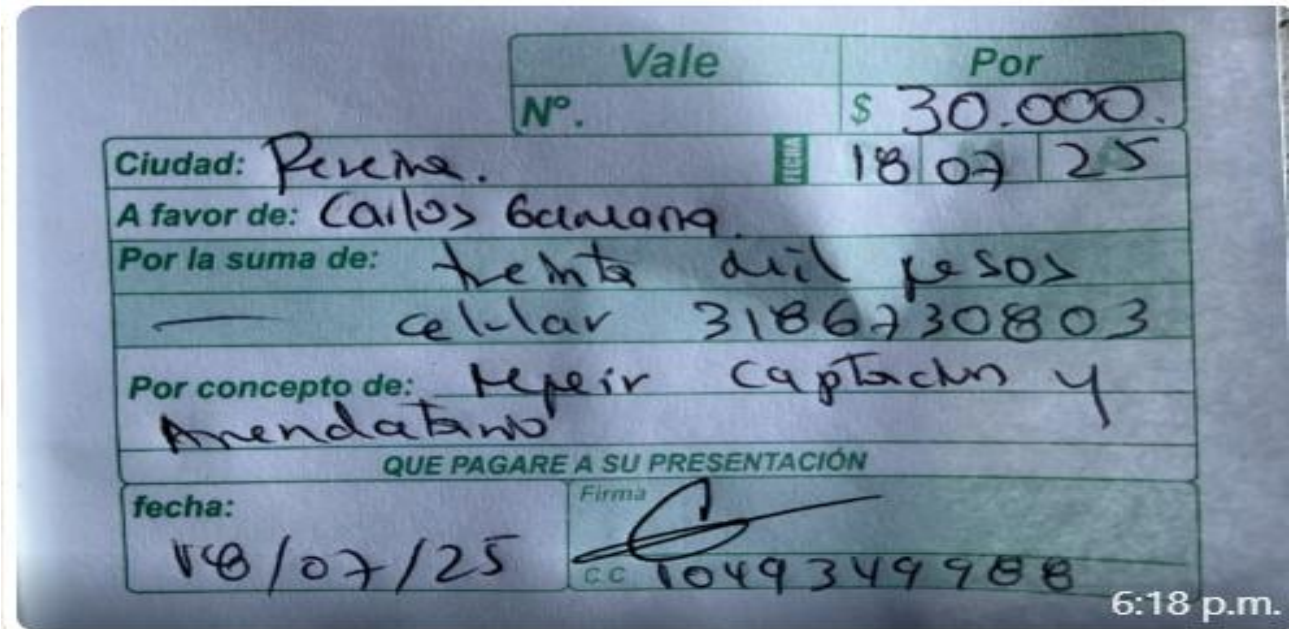 Vale Por
Nº. $ 30.000.
Ciudad: Pereira. FECHA 18 07 25
A favor de: Carlos
Por la suma de: treinta mil pesos
— celular 3186730803
Por concepto de: captación y
Arrendatario
QUE PAGARE A SU PRESENTACIÓN
fecha: Firma
18/07/25
C.C 1049349988
6:18 p.m.